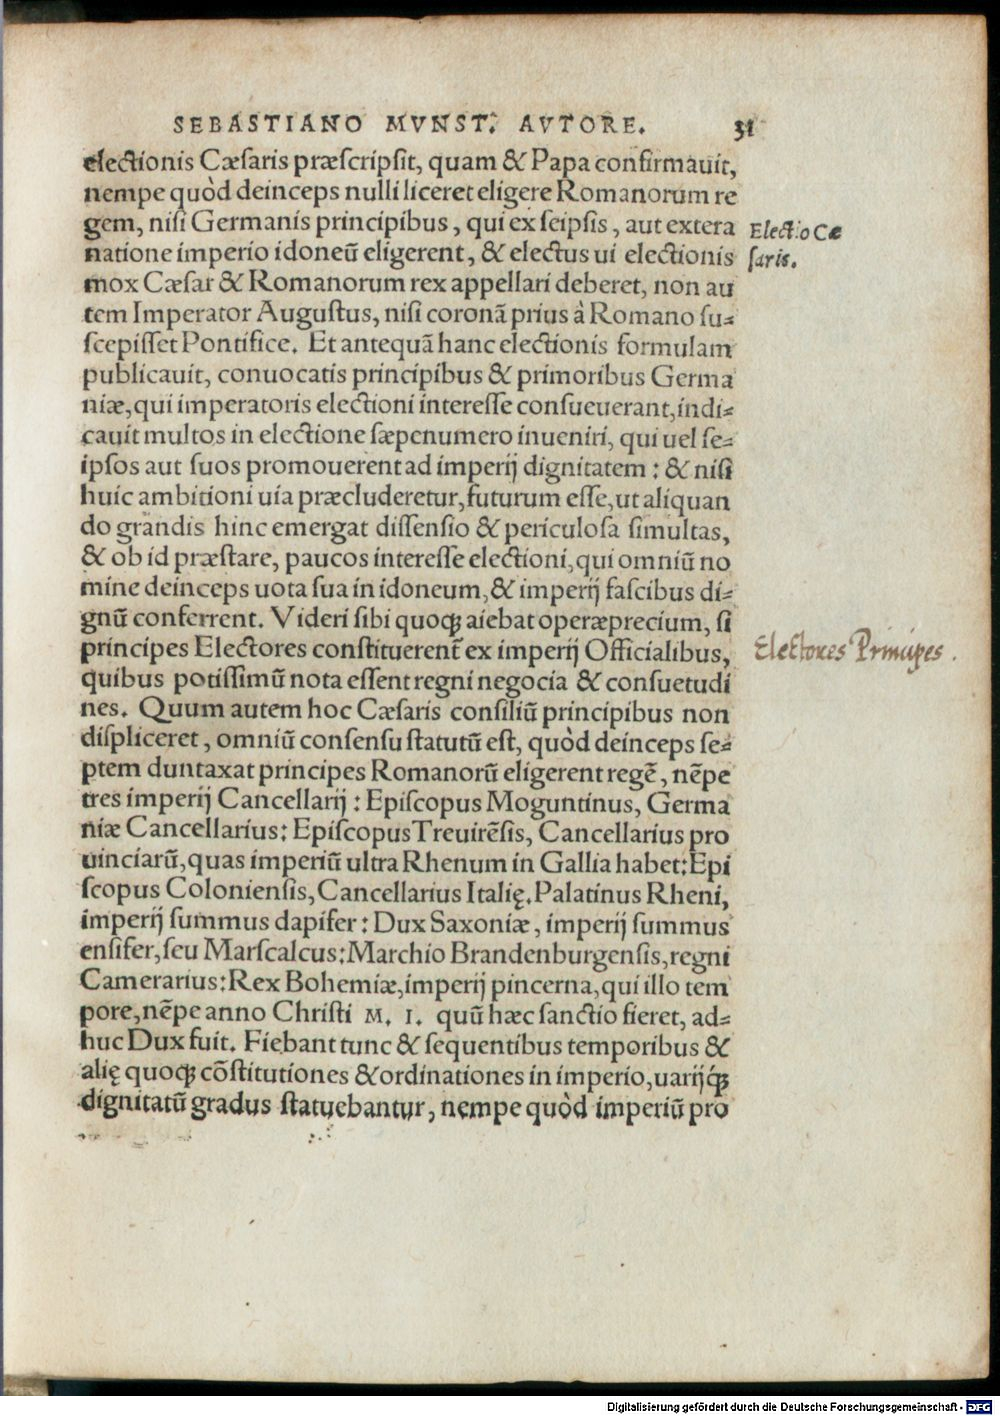 SEBASTIANO MVNST. AVTORE. 31
electionis Cæsaris præscripsit, quam & Papa confirmauit,
nempe quòd deinceps nulli liceret eligere Romanorum re
gem, nisi Germanis principibus, qui ex seipsis, aut extera
Electio Cæ
natione imperio idoneũ eligerent, & electus ui electionis
saris.
mox Cæsar & Romanorum rex appellari deberet, non au
tem Imperator Augustus, nisi coronã prius à Romano su-
scepisset Pontifice. Et antequã hanc electionis formulam
publicauit, conuocatis principibus & primoribus Germa
niæ, qui imperatoris electioni interesse consueuerant, indi-
cauit multos in electione sæpenumero inueniri, qui uel se-
ipsos aut suos promouerent ad imperij dignitatem: & nisi
huic ambitioni uia præcluderetur, futurum esse, ut aliquan
do grandis hinc emergat dissensio & periculosa simultas,
& ob id præstare, paucos interesse electioni, qui omniũ no
mine deinceps uota sua in idoneum, & imperij fascibus di-
gnũ conferrent. Videri sibi quoqꝫ aiebat operæprecium, si
principes Electores constituerent̃ ex imperij Officialibus,
Electores Principes.
quibus potissimũ nota essent regni negocia & consuetudi
nes. Quum autem hoc Cæsaris consiliũ principibus non
displiceret, omniũ consensu statutũ est, quòd deinceps se-
ptem duntaxat principes Romanorũ eligerent regẽ, nẽpe
tres imperij Cancellarij: Episcopus Moguntinus, Germa
niæ Cancellarius: Episcopus Treuirẽsis, Cancellarius pro
uinciarũ, quas imperiũ ultra Rhenum in Gallia habet: Epi
scopus Coloniensis, Cancellarius Italię. Palatinus Rheni,
imperij summus dapifer: Dux Saxoniæ, imperij summus
ensifer, seu Marscalcus: Marchio Brandenburgensis, regni
Camerarius: Rex Bohemiæ, imperij pincerna, qui illo tem
pore, nẽpe anno Christi M. I. quũ hæc sanctio fieret, ad-
huc Dux fuit. Fiebant tunc & sequentibus temporibus &
alię quoqꝫ cõstitutiones & ordinationes in imperio, uarijqꝫ́
dignitatũ gradus statuebantur, nempe quòd imperiũ pro
Digitalisierung gefördert durch die Deutsche Forschungsgemeinschaft - DFG